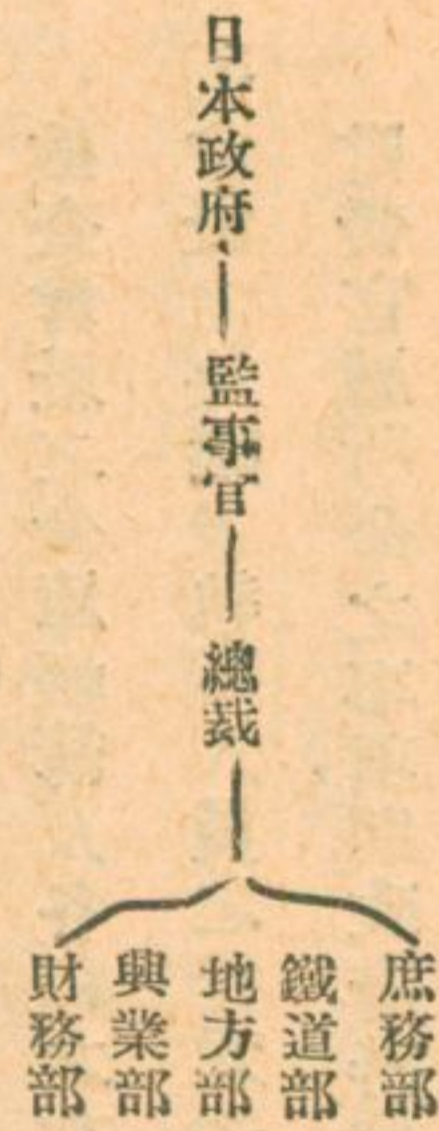 日本政府
監事官
總裁
庶務部
鐵道部
地方部
興業部
財務部